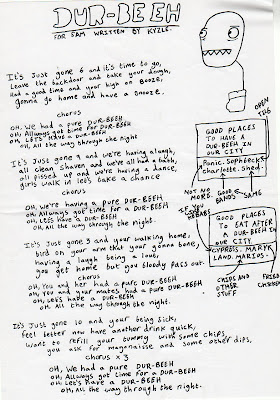 DUR-BEEH
FOR SAM WRITTEN BY KYZLE.
It's Just gone 6 and it's time to go,
Leave the backdoor and take your dough,
Had a good time and your high on Booze,
gonna go home and have a snooze.
chorus
OH, We had a pure DUR-BEEH
OH, Allways got time for DUR-BEEH
OH, LET'S HAVE a DUR-BEEH
OH, All the way through the night
It's Just gone 9 and we're having a laugh,
all clean shaven and we've all had a bath,
all pissed up and we're having a dance,
girls walk in let's take a chance
chorus
OH, we're having a pure DUR-BEEH
OH, Allways got time for a DUR-BEEH
OH, LETS HAVE a DUR-BEEH
OH, All the way through the night.
It's Just gone 3 and your walking home,
bird on your arm that your gonna bone,
having a laugh being a lout,
you get home but you bloody pass out.
chorus
OH, You and her had a pure DUR-BEEH
OH, You and your mates had a pure DUR-BEEH
OH, Let's have a DUR-BEEH
OH, All the way through the night.
It's Just gone 10 and your being sick,
feel better now have another drink quick,
want to refill your tummy with some chips,
you ask for mayonaisse and some other dips,
chorus x 3
OH, We had a pure DUR-BEEH
OH, Allways got time for a DUR-BEEH
OH, Let's have a DUR-BEEH
OH, all the way through the night.
OPEN
THIS
GOOD PLACES
TO HAVE A
DUR-BEEH IN
OUR CITY
Panic. Sophbecks.
Charlotte. Shed.
NOT NO
MORE.
GOOD
BANDS
SAME
IF YOU
GOOD PLACES
TO EAT AFTER
A DUR-BEEH IN
OUR CITY
CYPROSS. MARYK
LAND. MARIOS.
CHIPS AND
OTHER
STUFF
FRIED
CHICKEN